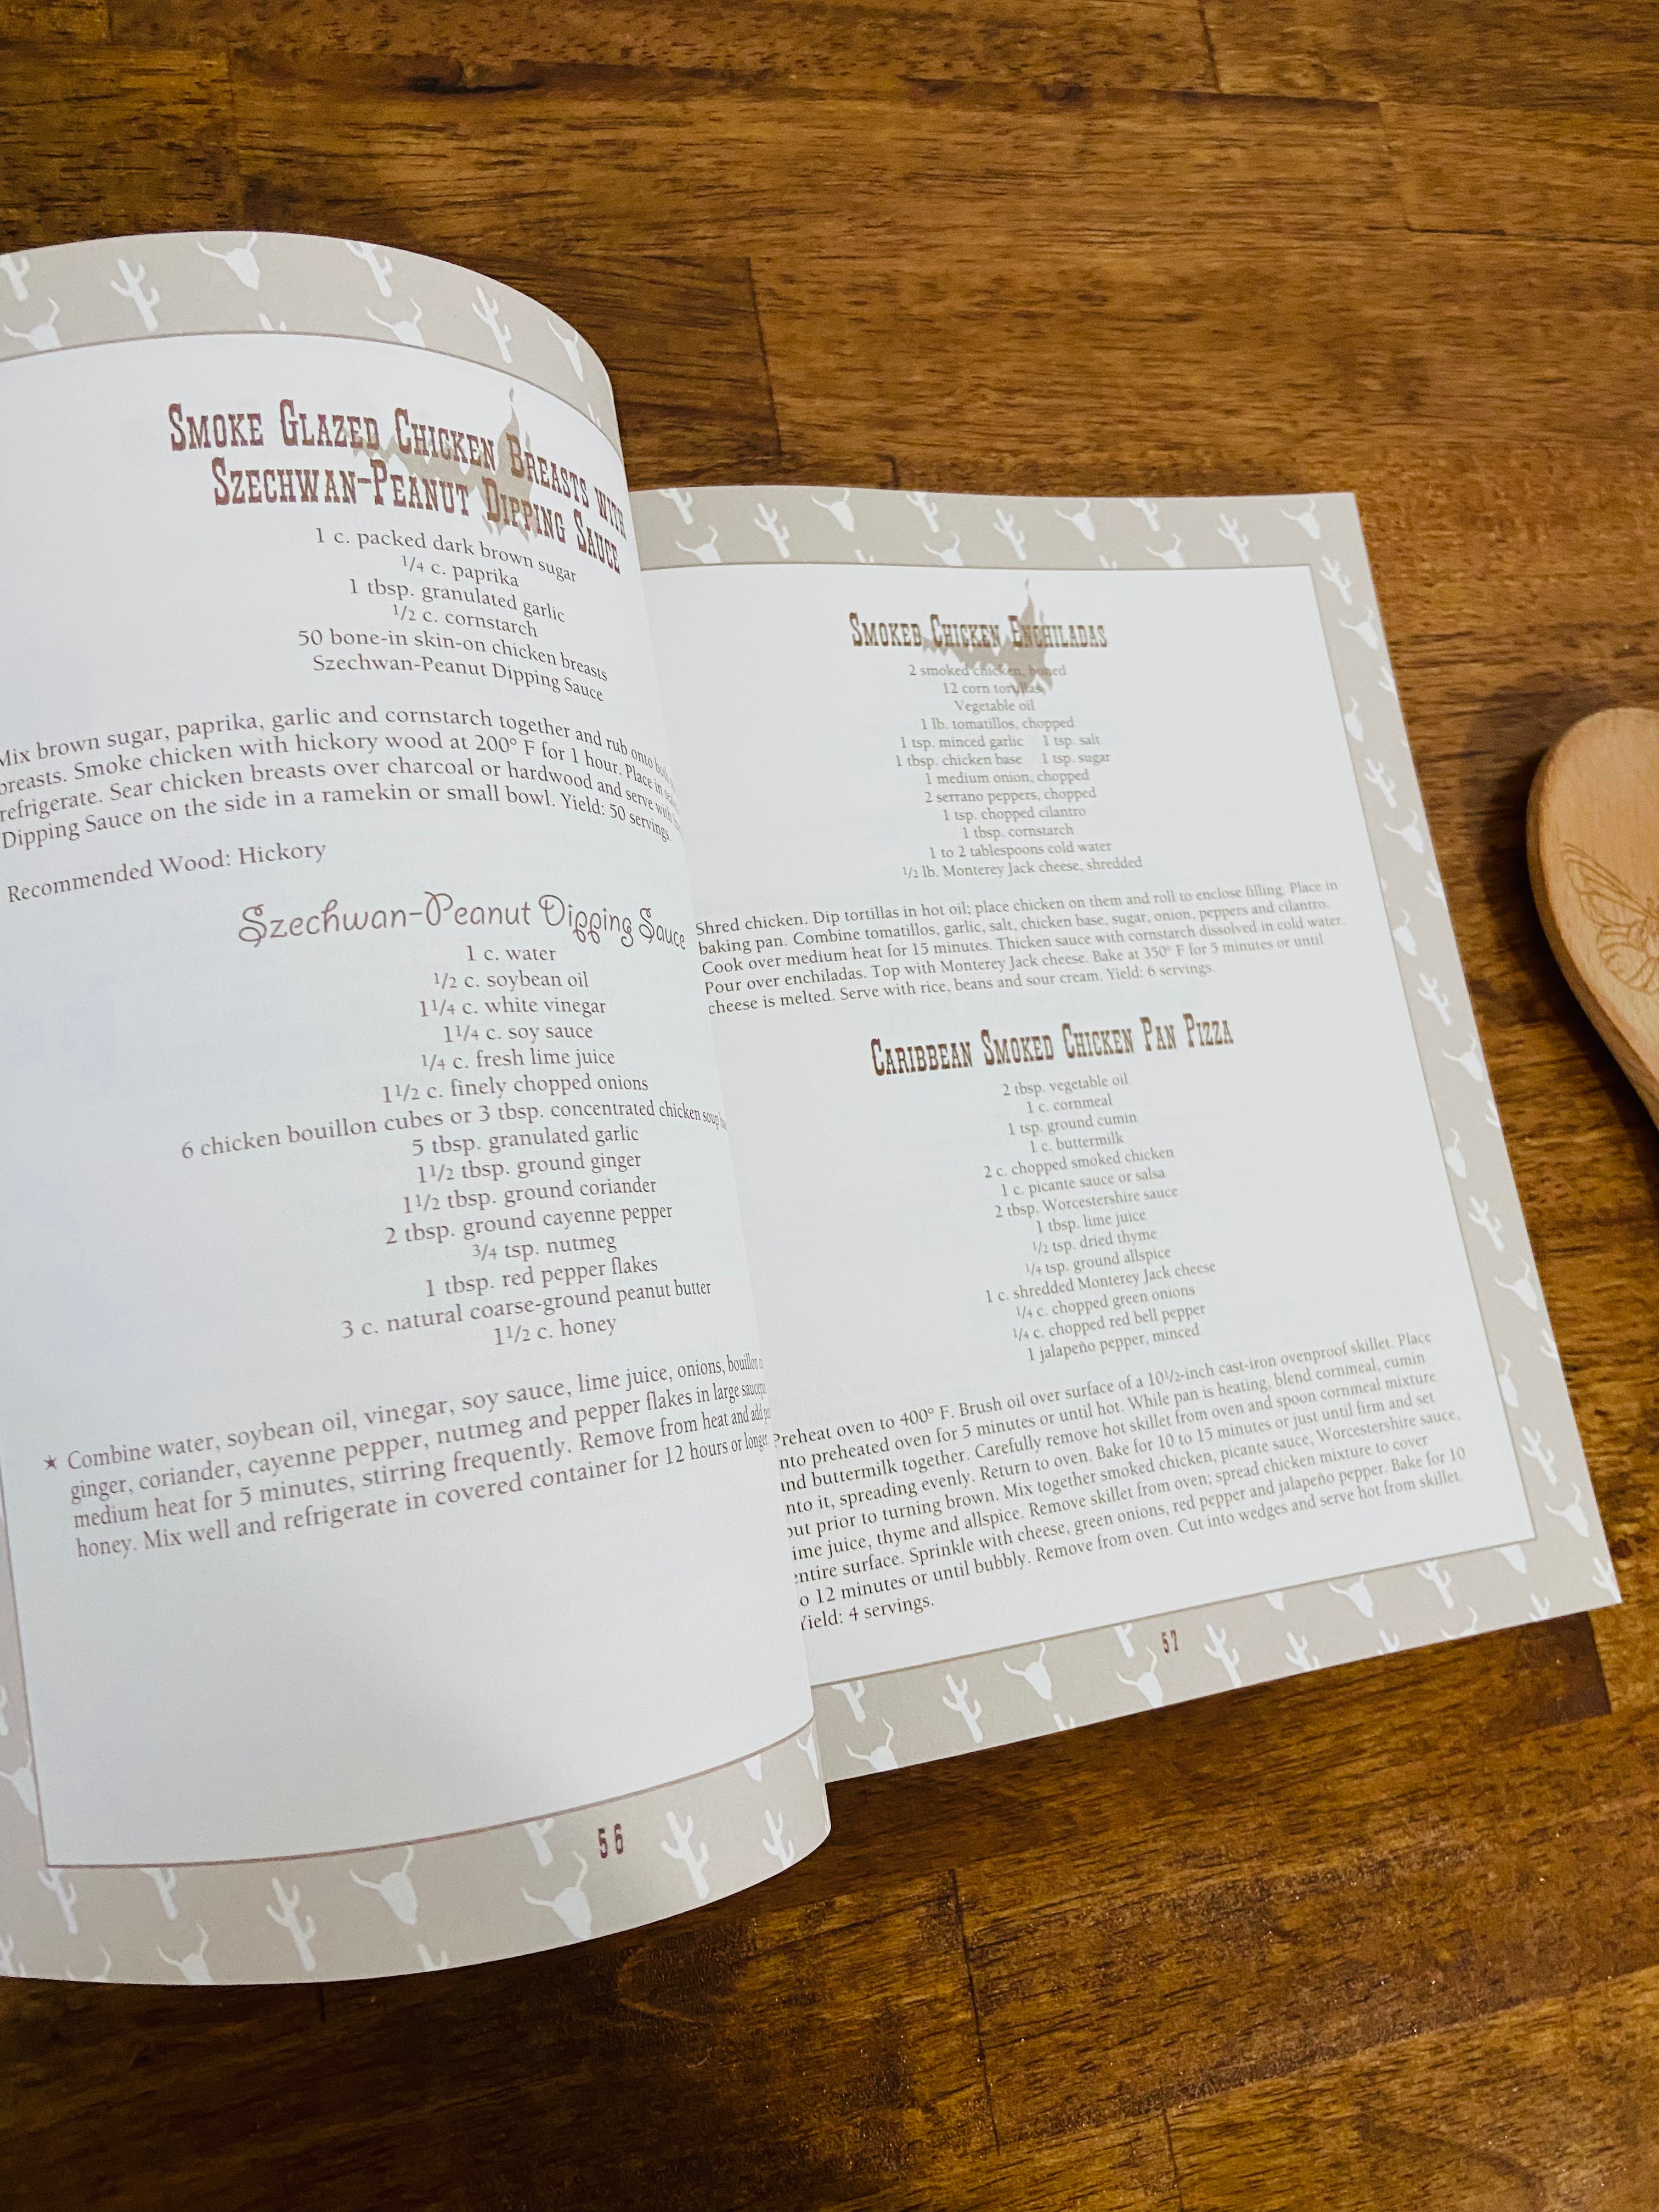 SMOKE GLAZED CHICKEN BREASTS WITH
SZECHWAN-PEANUT DIPPING SAUCE
1 c. packed dark brown sugar
1/4 c. paprika
1 tbsp. granulated garlic
1/2 c. cornstarch
50 bone-in skin-on chicken breasts
Szechwan-Peanut Dipping Sauce
Mix brown sugar, paprika, garlic and cornstarch together and rub onto
breasts. Smoke chicken with hickory wood at 200° F for 1 hour. Place in
refrigerate. Sear chicken breasts over charcoal or hardwood and serve with
Dipping Sauce on the side in a ramekin or small bowl. Yield: 50 servings.
Recommended Wood: Hickory
Szechwan-Peanut Dipping Sauce
1 c. water
1/2 c. soybean oil
1 1/4 c. white vinegar
1 1/4 c. soy sauce
1/4 c. fresh lime juice
1 1/2 c. finely chopped onions
6 chicken bouillon cubes or 3 tbsp. concentrated chicken soup
5 tbsp. granulated garlic
1 1/2 tbsp. ground ginger
1 1/2 tbsp. ground coriander
2 tbsp. ground cayenne pepper
3/4 tsp. nutmeg
1 tbsp. red pepper flakes
3 c. natural coarse-ground peanut butter
1 1/2 c. honey
★ Combine water, soybean oil, vinegar, soy sauce, lime juice, onions, bouillon
ginger, coriander, cayenne pepper, nutmeg and pepper flakes in large
medium heat for 5 minutes, stirring frequently. Remove from heat and add
honey. Mix well and refrigerate in covered container for 12 hours or longer.
56
SMOKED CHICKEN ENCHILADAS
2 smoked chicken, boned
12 corn tortillas
Vegetable oil
1 lb. tomatillos, chopped
1 tsp. minced garlic 1 tsp. salt
1 tbsp. chicken base 1 tsp. sugar
1 medium onion, chopped
2 serrano peppers, chopped
1 tsp. chopped cilantro
1 tbsp. cornstarch
1 to 2 tablespoons cold water
1/2 lb. Monterey Jack cheese, shredded
Shred chicken. Dip tortillas in hot oil; place chicken on them and roll to enclose filling. Place in
baking pan. Combine tomatillos, garlic, salt, chicken base, sugar, onion, peppers and cilantro.
Cook over medium heat for 15 minutes. Thicken sauce with cornstarch dissolved in cold water.
Pour over enchiladas. Top with Monterey Jack cheese. Bake at 350° F for 5 minutes or until
cheese is melted. Serve with rice, beans and sour cream. Yield: 6 servings.
CARIBBEAN SMOKED CHICKEN PAN PIZZA
2 tbsp. vegetable oil
1 c. cornmeal
1 tsp. ground cumin
1 c. buttermilk
2 c. chopped smoked chicken
1 c. picante sauce or salsa
2 tbsp. Worcestershire sauce
1 tbsp. lime juice
1/2 tsp. dried thyme
1/4 tsp. ground allspice
1 c. shredded Monterey Jack cheese
1/4 c. chopped green onions
1/4 c. chopped red bell pepper
1 jalapeño pepper, minced
Preheat oven to 400° F. Brush oil over surface of a 10 1/2-inch cast-iron ovenproof skillet. Place
nto preheated oven for 5 minutes or until hot. While pan is heating, blend cornmeal, cumin
and buttermilk together. Carefully remove hot skillet from oven and spoon cornmeal mixture
nto it, spreading evenly. Return to oven. Bake for 10 to 15 minutes or just until firm and set
out prior to turning brown. Mix together smoked chicken, picante sauce, Worcestershire sauce,
ime juice, thyme and allspice. Remove skillet from oven; spread chicken mixture to cover
entire surface. Sprinkle with cheese, green onions, red pepper and jalapeño pepper. Bake for 10
o 12 minutes or until bubbly. Remove from oven. Cut into wedges and serve hot from skillet.
Yield: 4 servings.
57